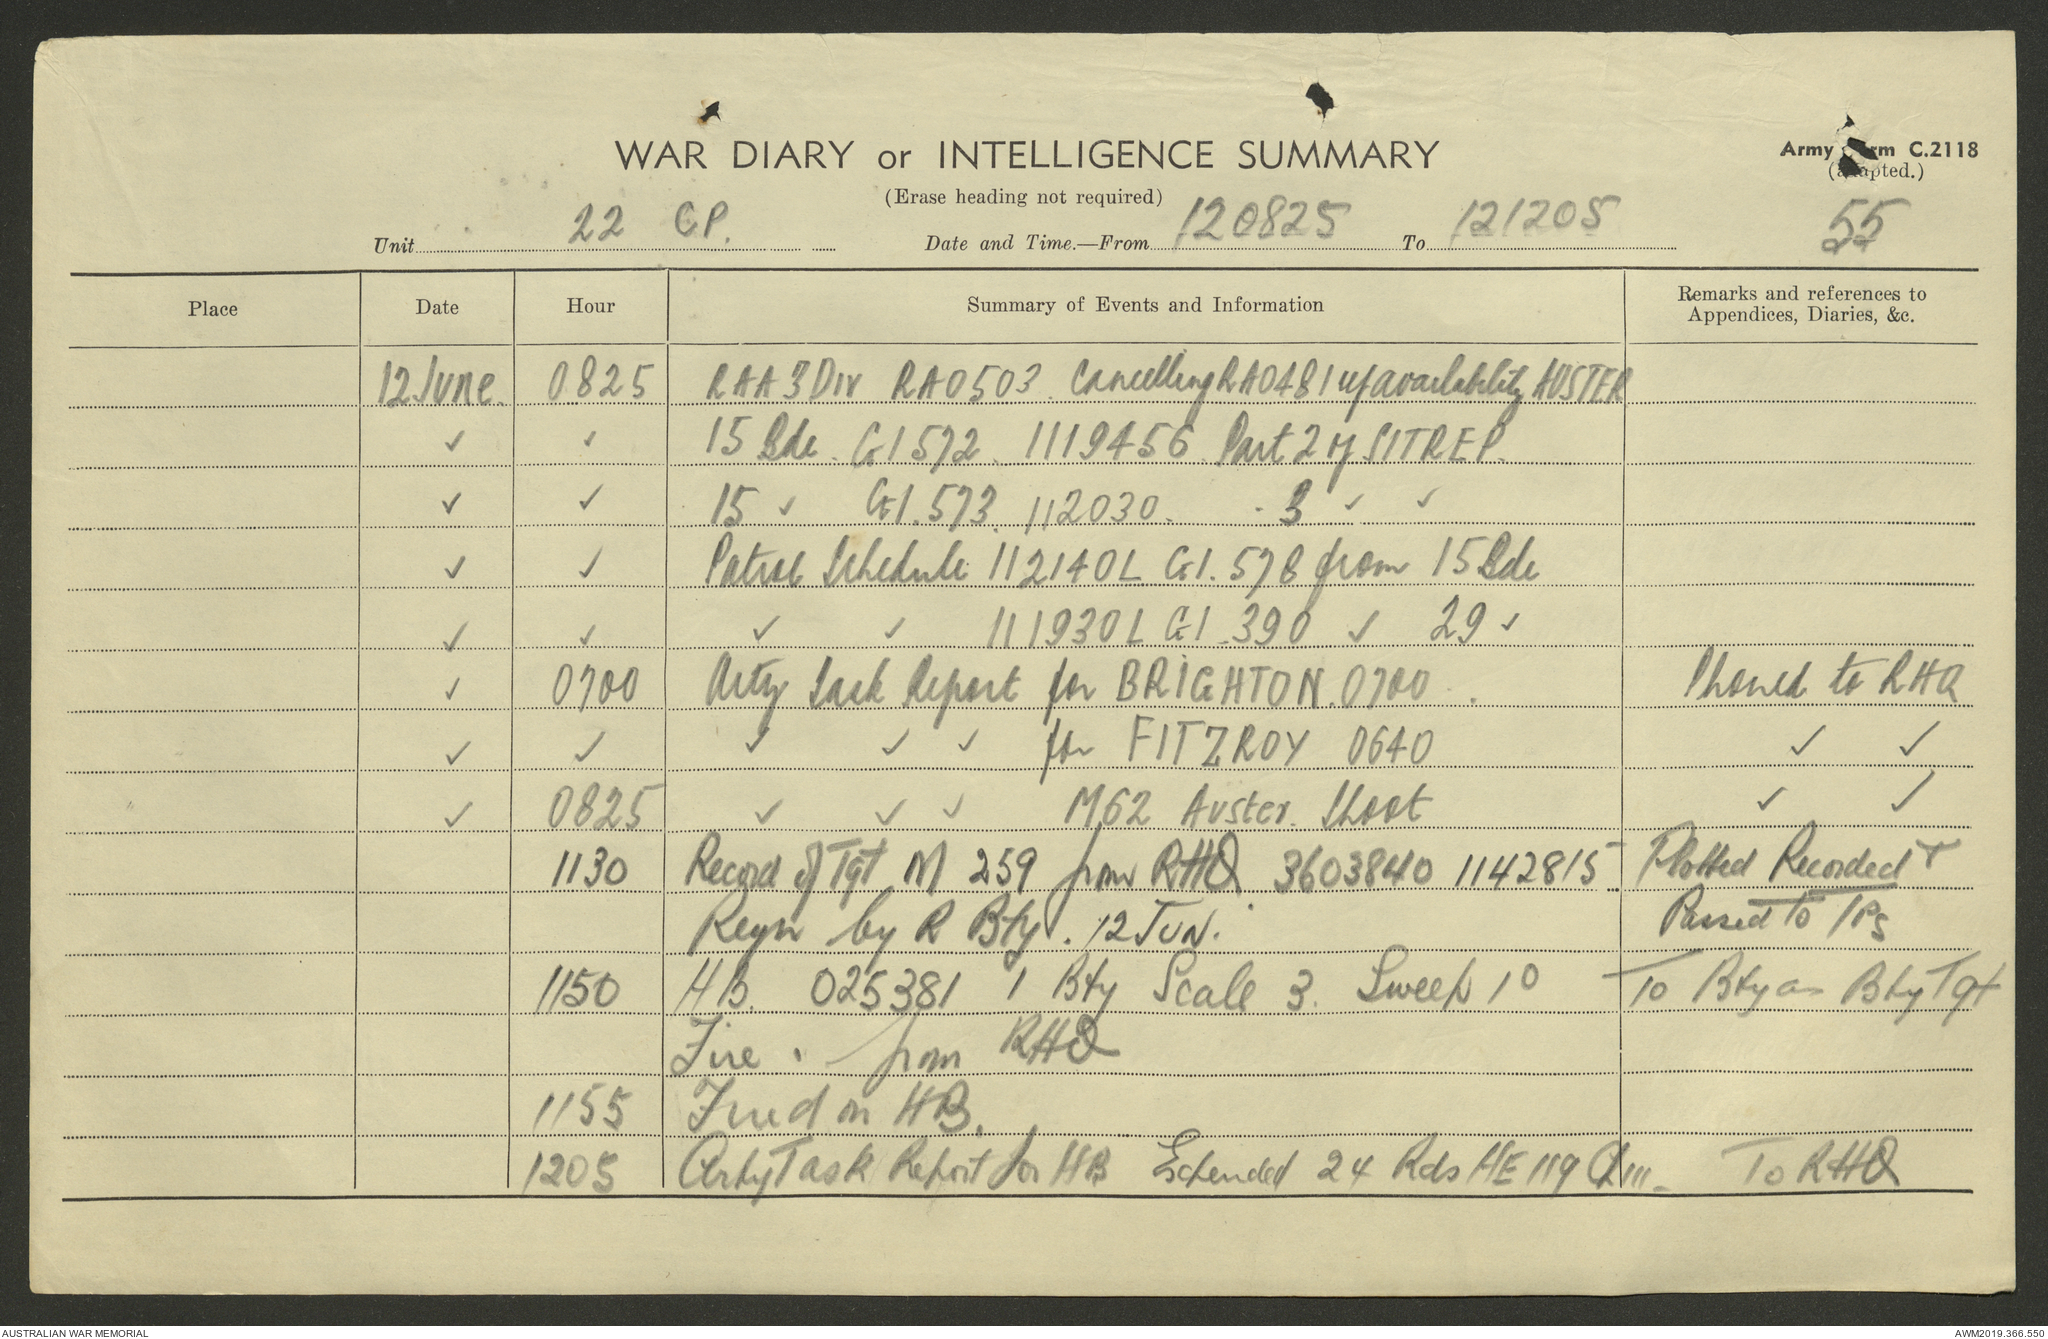 WAR DIARY or INTELLIGENCE SUMMARY
Army Form C.2118
(Erase heading not required)
(adapted.)
Unit 22 CP. Date and Time.—From 120825 To 121205 55
Place Date Hour Summary of Events and Information Remarks and references to Appendices, Diaries, &c.
12 June. 0825 RAA 3 Div RA0503. Cancelling RA0481 availability AUSTER
✓ ✓ 15 Bde. G1572. 1119456 Part 2 of SITREP.
✓ ✓ 15 ✓ G1.573. 112030. - 3 ✓ ✓
✓ ✓ Patrol Schedule 112140L G1.578 from 15 Bde
✓ ✓ ✓ ✓ 111930L G1.390 ✓ 29 ✓
✓ 0700 Arty Task Report for BRIGHTON. 0700. Phoned to RHQ
✓ ✓ ✓ ✓ ✓ for FITZROY 0640 ✓ ✓
✓ 0825 ✓ ✓ ✓ M62 Auster. Shoot ✓ ✓
1130 Record of Tgt M 259 from RHQ 3603840 1142815 Plotted Recorded +
Regn by R Bty. 12 JUN. Passed to TPs
1150 HB. 025381 1 Bty Scale 3. Sweep 1° To Bty as Bty Tgt
Fire. from RHQ
1155 Fired on HB.
1205 Arty Task Report for HB Expended 24 Rds HE 119 To RHQ
AUSTRALIAN WAR MEMORIAL
AWM2019.366.550